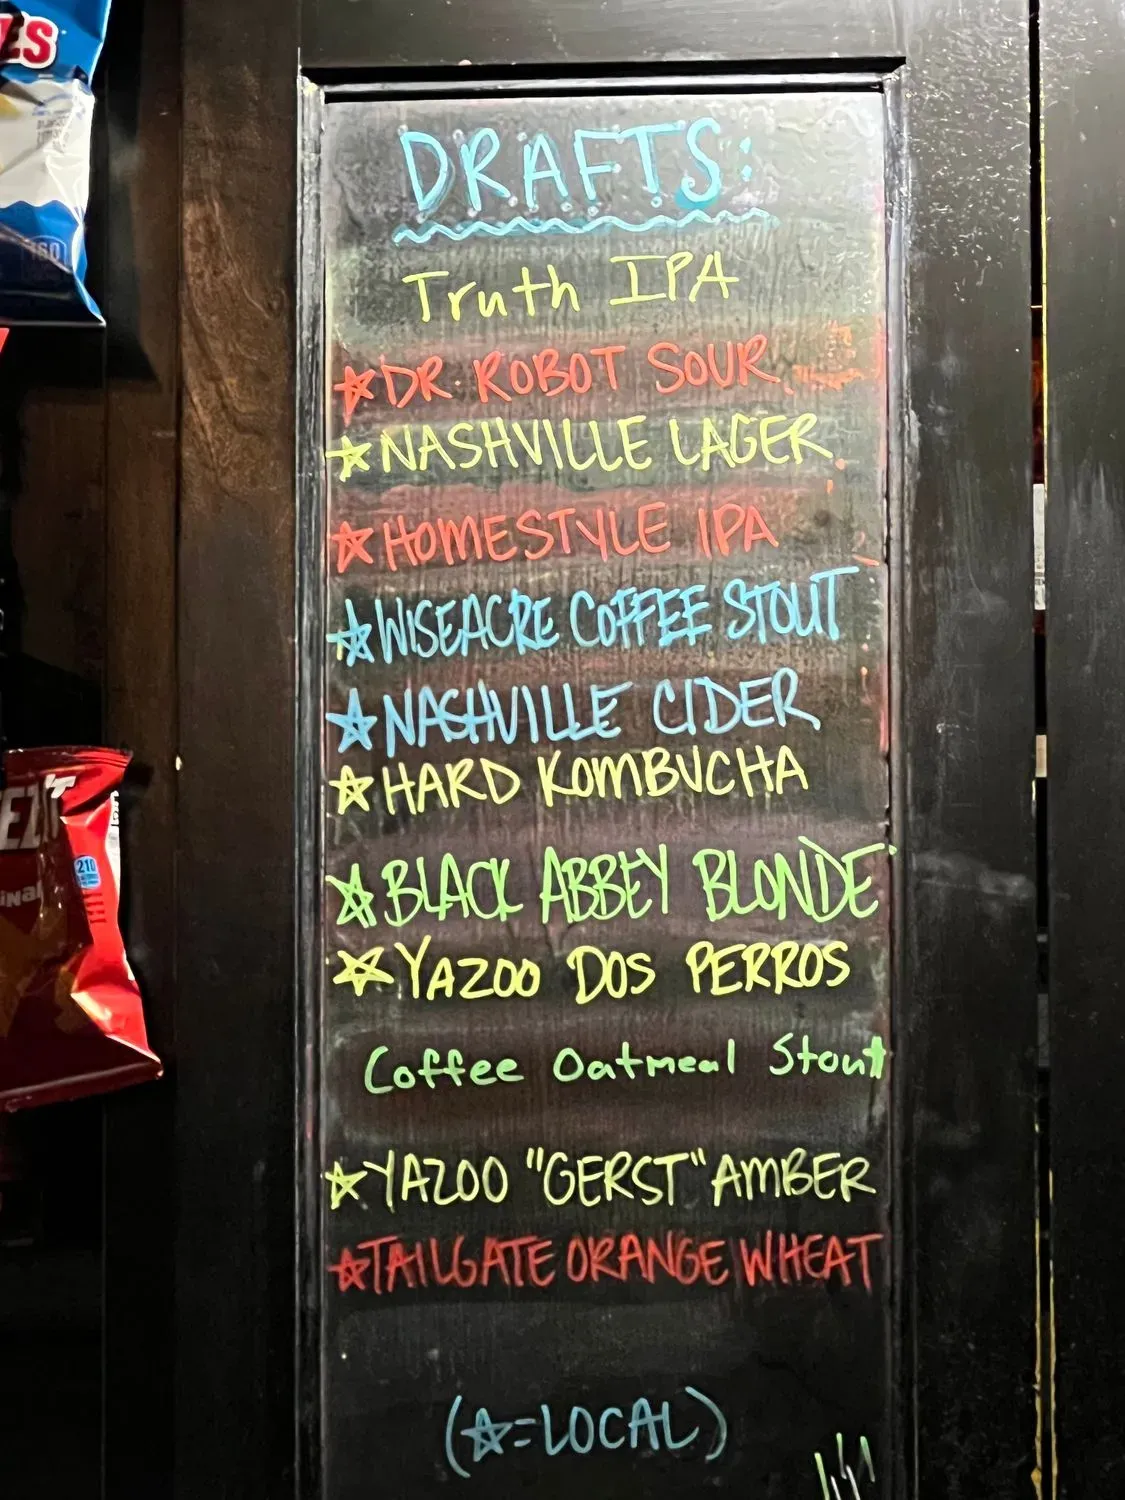 DRAFTS:
Truth IPA
☆DR. ROBOT SOUR
☆NASHVILLE LAGER
☆HOMESTYLE IPA
☆WISEACRE COFFEE STOUT
☆NASHVILLE CIDER
☆HARD KOMBUCHA
☆BLACK ABBEY BLONDE
☆YAZOO DOS PERROS
Coffee Oatmeal Stout
☆YAZOO "GERST" AMBER
☆TAILGATE ORANGE WHEAT
(☆=LOCAL)
ES
160
210